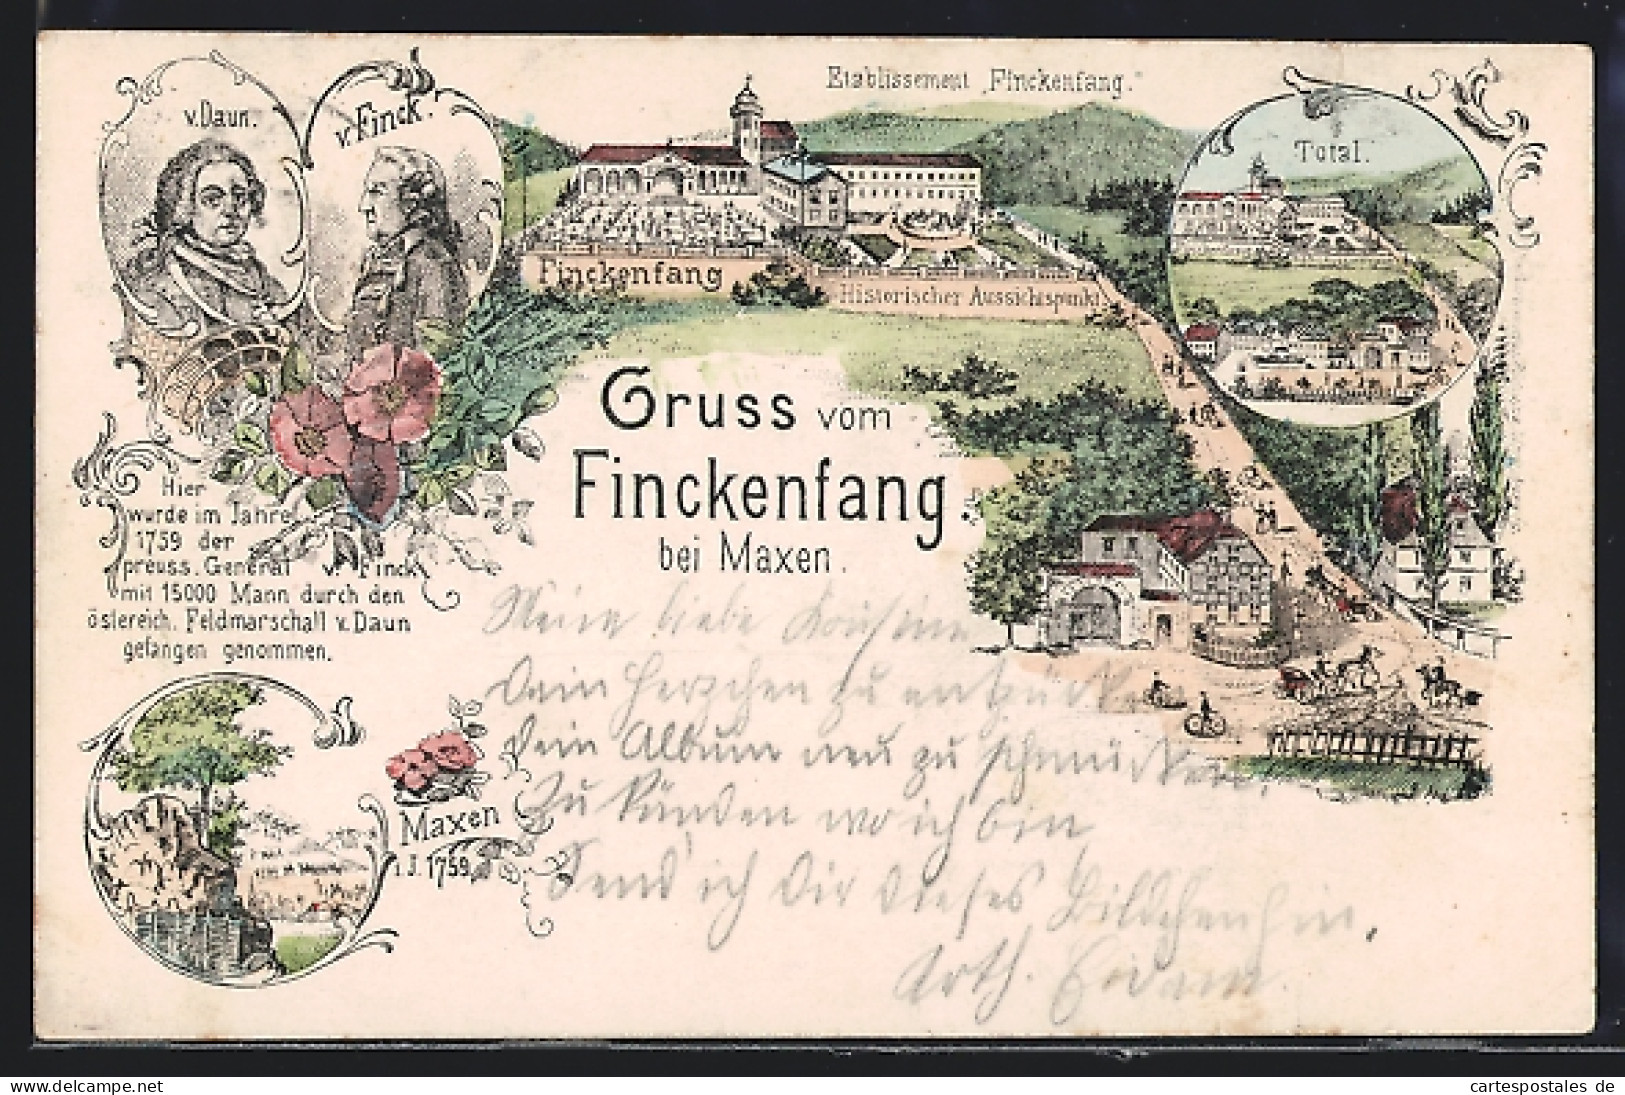 v. Daun.
v. Finck.
Etablissement „Finckenfang."
Total.
Finckenfang
Historischer Aussichtspunkt
Gruss vom
Finckenfang.
bei Maxen.
Hier
wurde im Jahre
1759 der
preuss. General v. Finck
mit 15000 Mann durch den
östereich. Feldmarschall v. Daun
gefangen genommen.
Maxen
i. J. 1759.
Meine liebe
Dein Herzchen zu
Dein Album neu zu schmücken,
Zu künden wo ich bin,
Send ich Dir dieses Bildchen hin.
Arth.
delcampe.net
cartespostales de